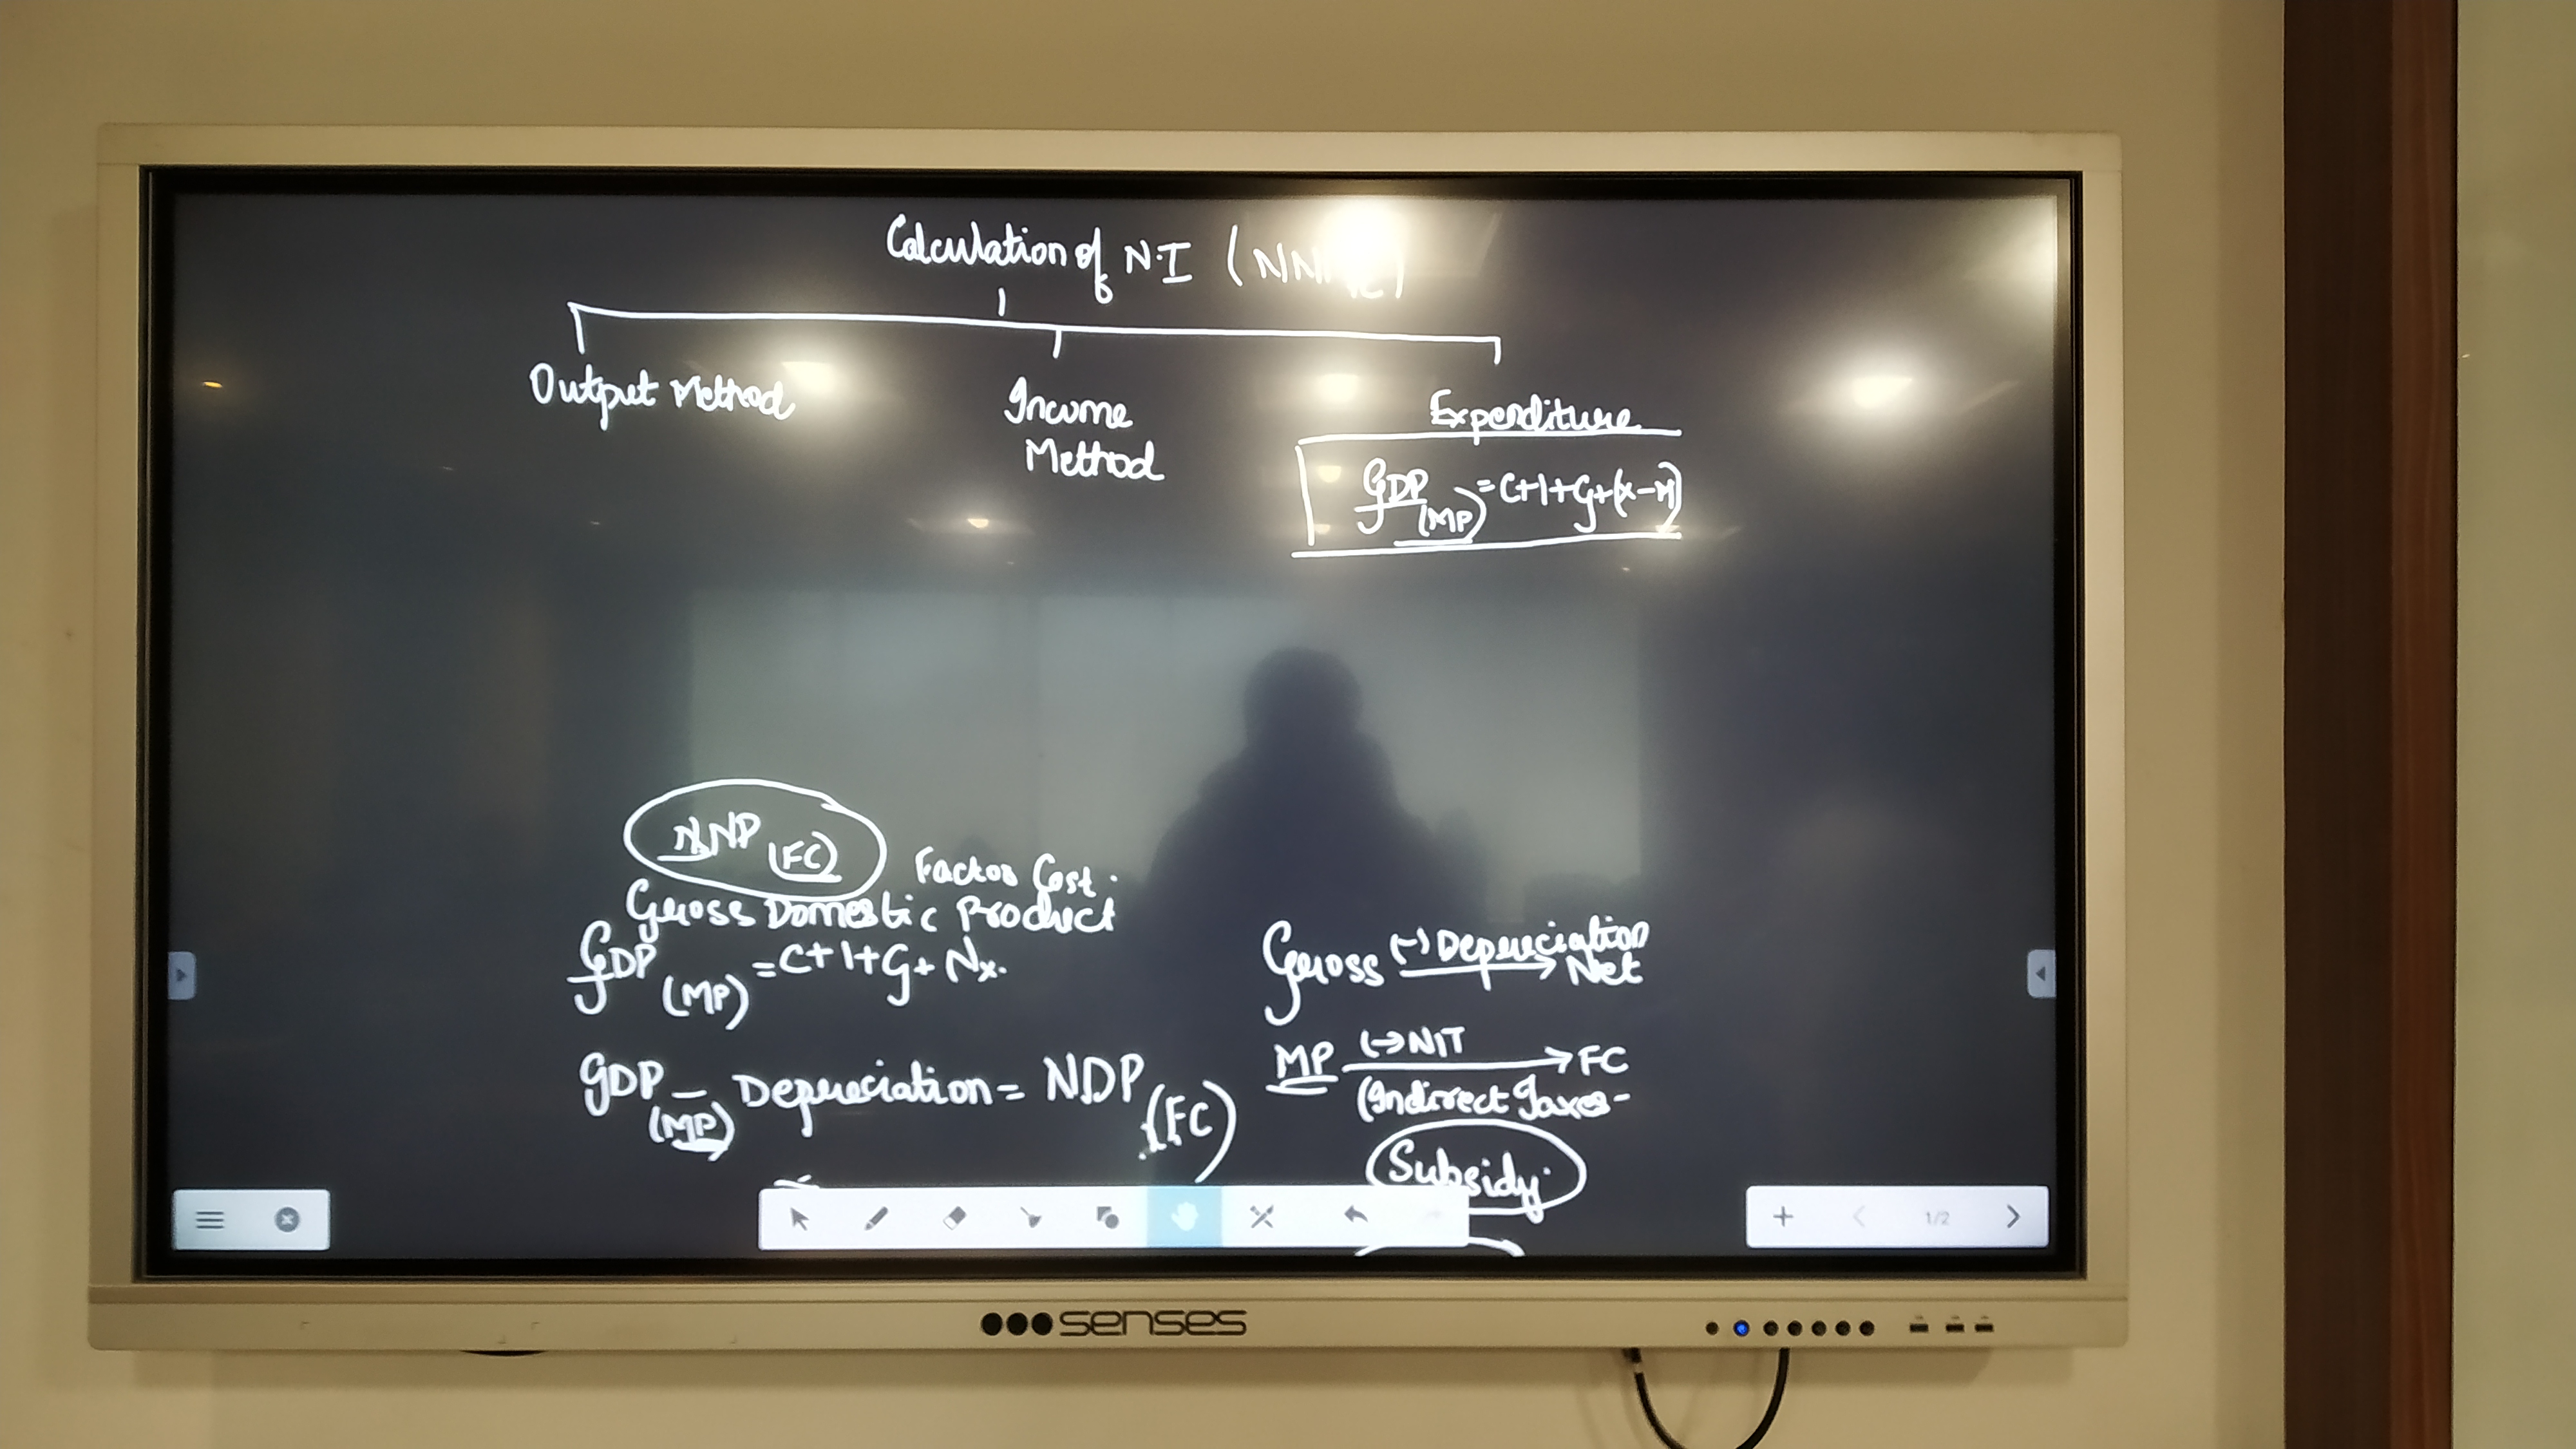 Calculation of N.I (NN
Output Method
Income
Method
Expenditure
GDP(MP) = C+I+G+(x-M)
NNP (FC)
Factor Cost.
Gross Domestic Product
GDP(MP) = C+I+G+Nx.
GDP(MP) - Depreciation = NDP(FC)
Gross (-) Depreciation → Net
MP (-) NIT → FC
(Indirect Taxes-
Subsidy
1/2
senses